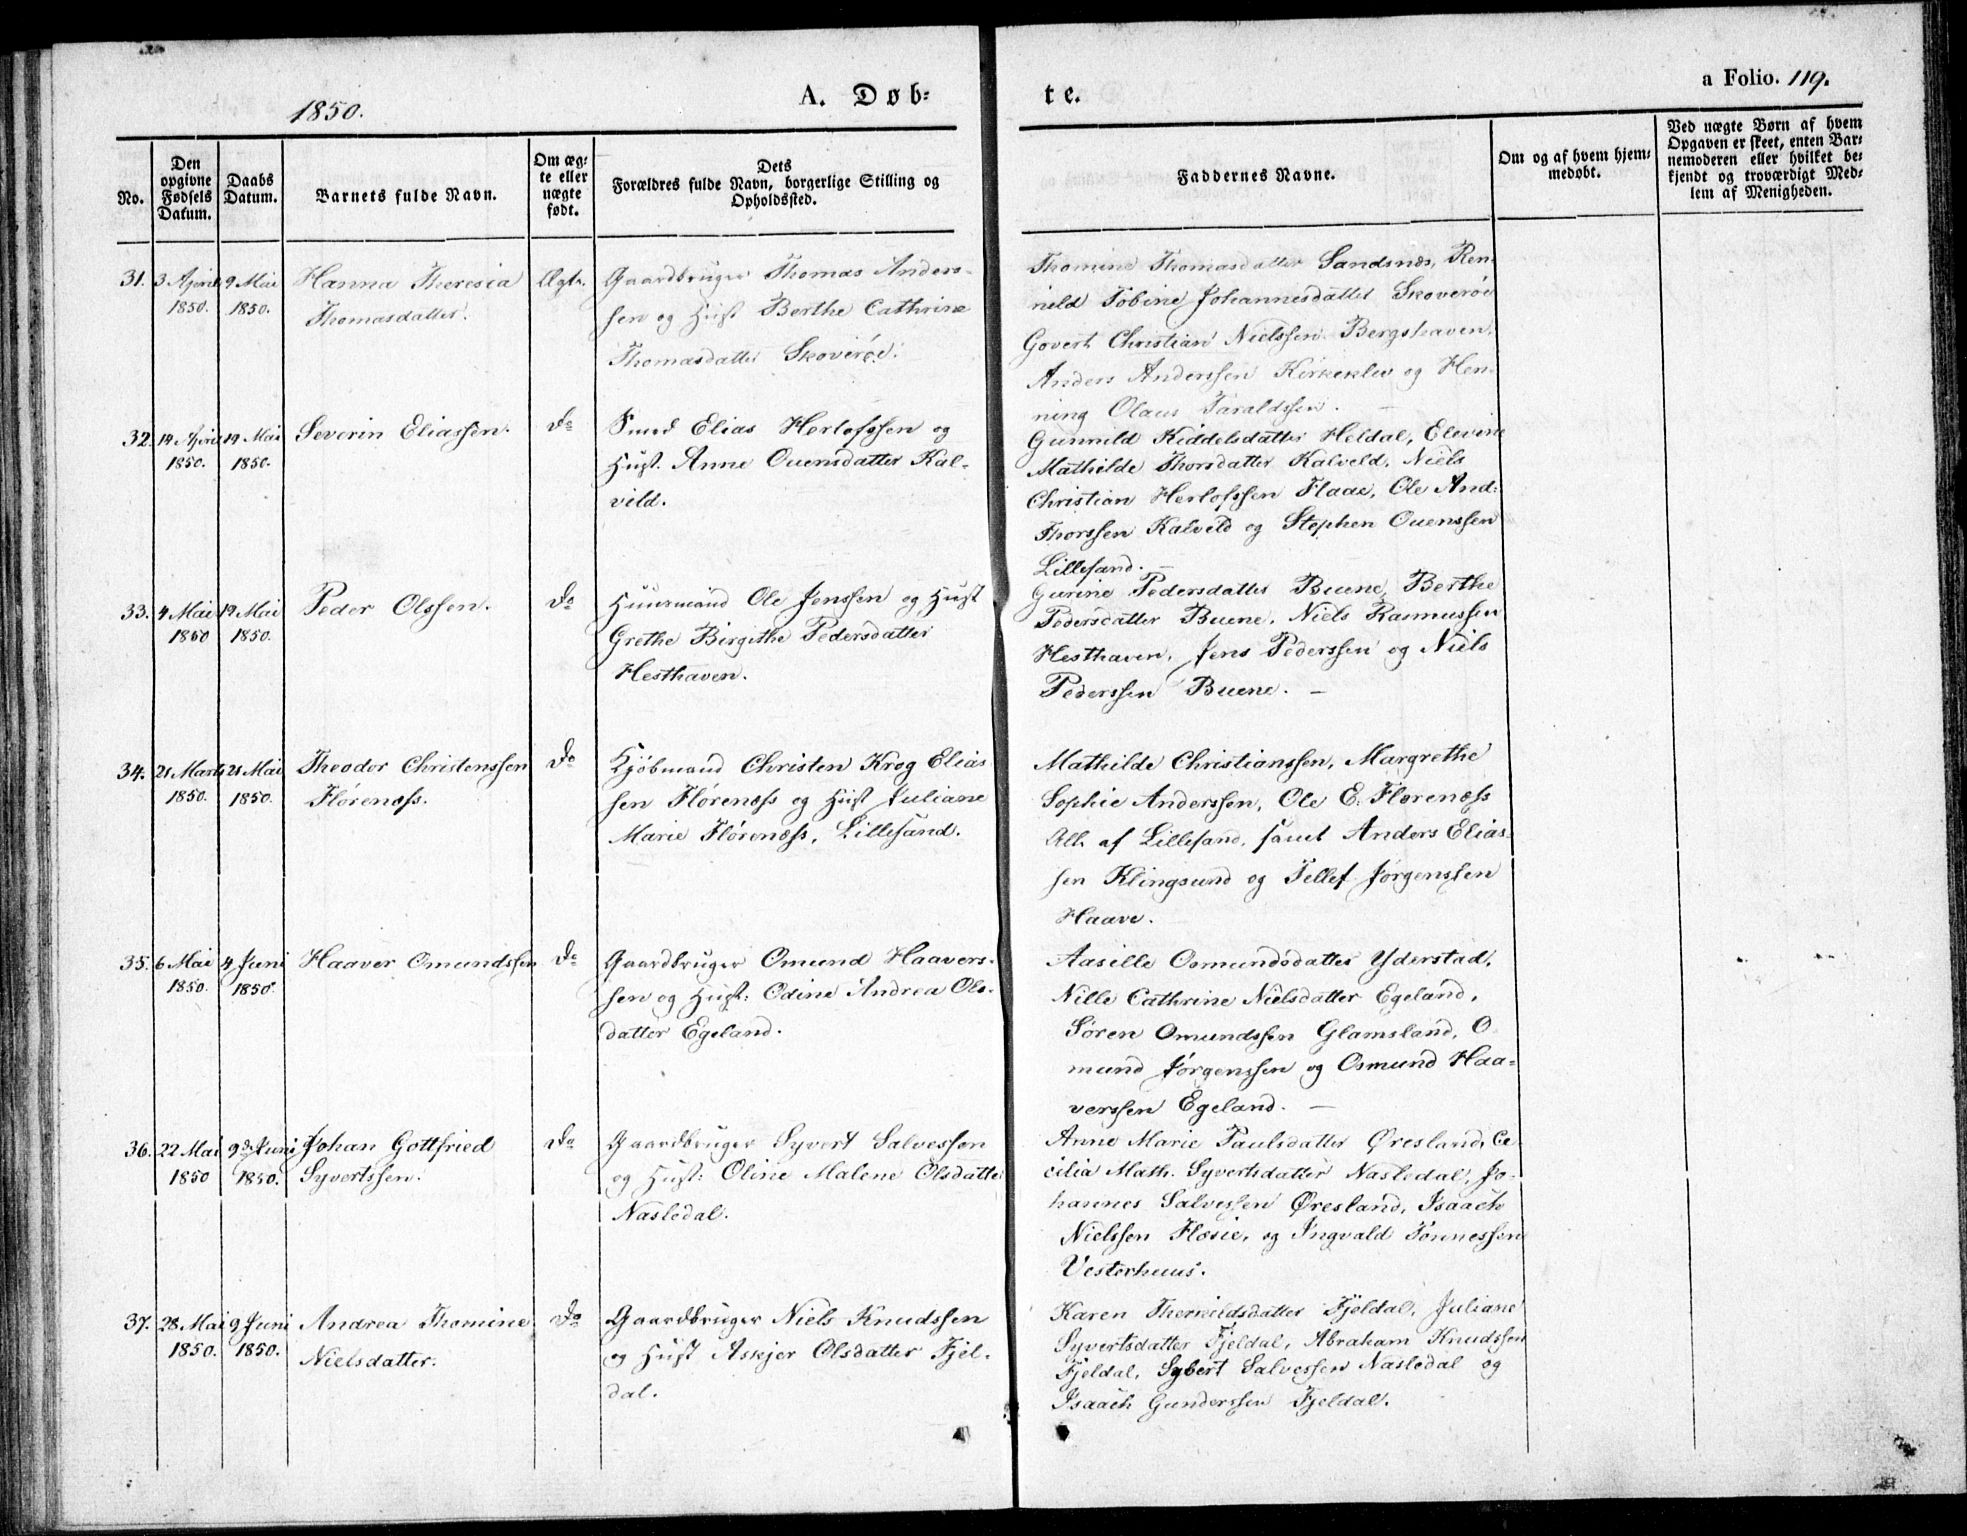 1850.
A. Døb=
te.
a Folio. 119.
No.
Den
opgivne
Fødsels
Datum.
Daabs
Datum.
Barnets fulde Navn.
Om æg=
te eller
uægte
født.
Dets
Forældres fulde Navn, borgerlige Stilling og
Opholdssted.
Faddernes Navne.
Om og af hvem hjem=
medøbt.
Ved uægte Børn af hvem
Opgaven er skeet, enten Bar=
nemoderen eller hvilket be=
kjendt og troværdigt Med=
lem af Menigheden.
31.
3 April
1850.
9 Mai
1850.
Hanna Theresia
Thomasdatter.
Ægte.
Gaardbruger Thomas Anders=
sen og Hust Berthe Cathrine
Thomasdatter Skoverøe.
Thomine Thomasdatter Sandsnæs, Ren=
nild Tobine Johannesdatter Skoverøe
Govert Christian Nielssen Bergshaven,
Anders Anderssen Kirkeklev og Hen=
ning Olaus Taraldssen.
32.
14 April
1850.
19 Mai
1850.
Severin Eliassen.
Do
Smed Elias Herlofssen og
Hust. Anne Ouensdatter Kal=
vild.
Gunnild Kiddelsdatter Heldal, Elevine
Mathilde Thorsdatter Kalveld, Niels
Christian Herlofssen Flaae, Ole And:
Thorssen Kalveld og Stephen Ouenssen
Lillesand.
33.
4 Mai
1850
19 Mai
1850.
Peder Olssen.
Do
Huusmand Ole Jenssen og Hust
Grethe Birgithe Pedersdatter
Hesthaven.
Gurine Pedersdatter Buene, Berthe
Pedersdatter Buene, Niels Rasmussen
Hesthaven, Jens Pederssen og Niels
Pederssen Buene. —
34.
21 Marts
1850.
21 Mai
1850.
Theodor Christenssen
Florenæss.
Do
Kjøbmand Christen Krog Elias
sen Florenæss og Hust Juliane
Marie Florenæss, Lillesand.
Mathilde Christianssen, Margrethe
Sophie Anderssen, Ole E. Florenæss
Alle af Lillesand, samt Anders Elias=
sen Klingsund og Tellef Jørgenssen
Haave.
35.
6 Mai
1850.
4 Juni
1850.
Haaver Omundssen
Do
Gaardbruger Omund Haavers=
sen og Hust: Odine Andrea Ols=
datter Egeland.
Aasille Osmundsdatter Yderstad,
Nille Cathrine Nielsdatter Egeland,
Søren Omundssen Glamsland, O
mund Jørgenssen og Osmund Haa=
verssen Egeland. —
36.
22 Mai
1850
9de Juni
1850.
Johan Gottfried
Syvertssen.
Do
Gaardbruger Syvert Salvessen
og Hust: Oline Malene Olsdatter
Nasledal.
Anne Marie Paulsdatter Øresland, Ce
cilia Math. Syvertsdatter Nasledal, Jo=
hannes Salvessen Øresland, Isaach
Nielssen Flosie, og Ingvald Tønnessen
Vesterhuus.
37.
28 Mai
1850.
9 Juni
1850.
Andrea Thomine
Nielsdatter.
Do
Gaardbruger Niels Knudssen
og Hust Askjer Olsdatter Fjel=
dal.
Karen Therkildsdatter Fjeldal, Juliane
Syvertsdatter Fjeldal, Abraham Knudssen
Fjeldal, Sybert Salvessen Nasledal og
Isaach Gunderssen Fjeldal.